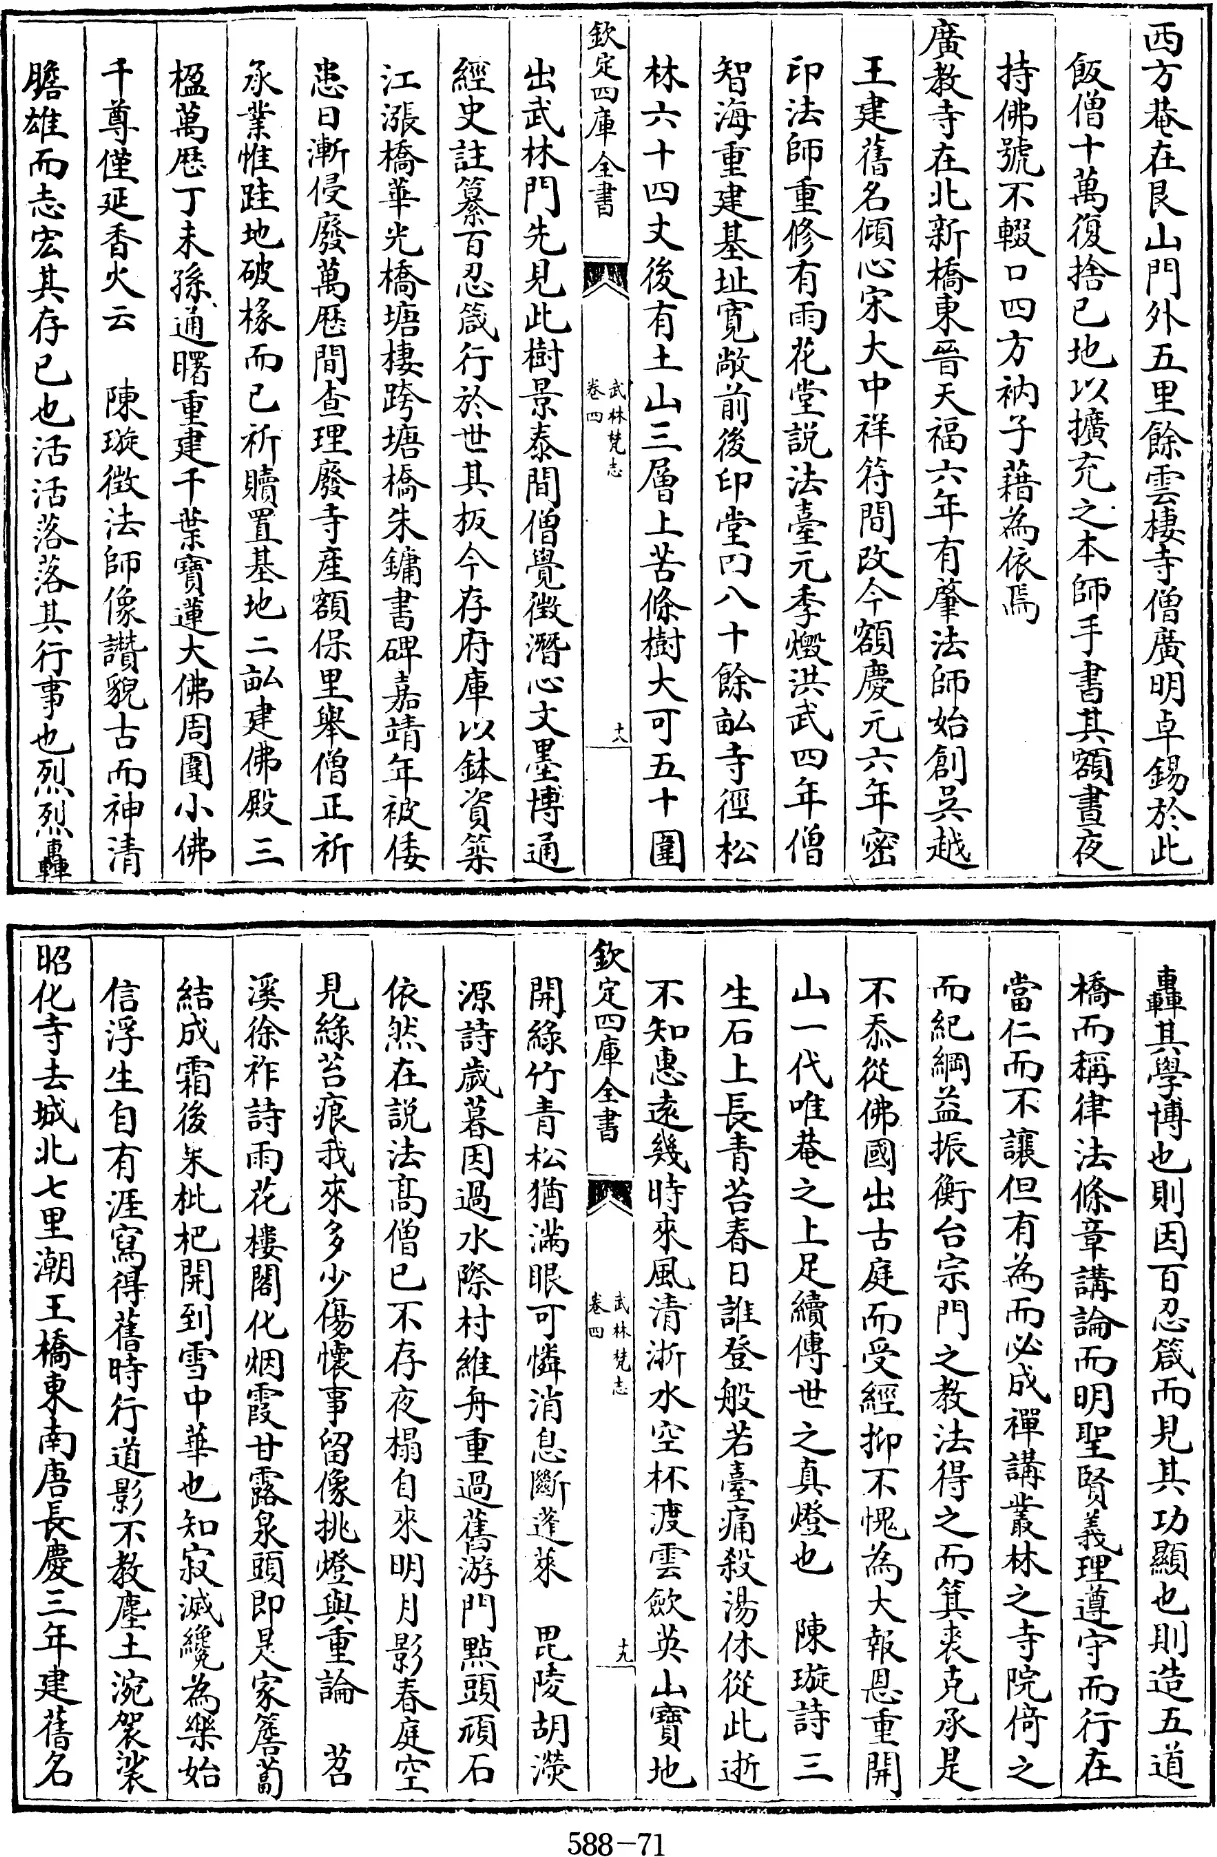 西方菴在艮山門外五里餘雲棲寺僧廣明卓錫於此
飯僧十萬復捨己地以擴充之本師手書其額晝夜
持佛號不輟口四方衲子藉為依焉
廣教寺在北新橋東晉天福六年有肇法師始創吳越
王建舊名傾心宋大中祥符間改今額慶元六年密
印法師重修有雨花堂説法臺元季燬洪武四年僧
智海重建基址寛敞前後印堂凹八十餘畝寺徑松
林六十四丈後有土山三層上苦條樹大可五十圍
欽定四庫全書
武林梵志
卷四
十八
出武林門先見此樹景泰間僧覺徴潛心文墨博通
經史註纂百忍箴行於世其板今存府庫以鉢資築
江漲橋華光橋塘棲跨塘橋朱鏞書碑嘉靖年被倭
患日漸侵廢萬厯間查理廢寺産額保里舉僧正祈
承業惟跬地破椽而已祈贖置基地二畝建佛殿三
楹萬厯丁未孫通曙重建千葉寶蓮大佛周圍小佛
千尊僅延香火云　陳璇徴法師像讚貌古而神清
膽雄而志宏其存已也活活落落其行事也烈烈轟
轟其學博也則因百忍箴而見其功顯也則造五道
橋而稱律法條章講論而明聖賢義理遵守而行在
當仁而不讓但有為而必成禪講叢林之寺院倚之
而紀綱益振衡台宗門之教法得之而箕裘克承是
不忝從佛國出古庭而受經抑不愧為大報恩重開
山一代唯菴之上足續傳世之真燈也　陳璇詩三
生石上長青苔春日誰登般若臺痛殺湯休從此逝
不知惠遠幾時來風清浙水空杯渡雲歛英山寶地
欽定四庫全書
武林梵志
卷四
十九
開綠竹青松猶滿眼可憐消息斷蓬萊　毘陵胡濙
源詩歲暮因過水際村維舟重過舊游門點頭頑石
依然在説法髙僧已不存夜榻自來明月影春庭空
見綠苔痕我來多少傷懷事留像挑燈與重論　苕
溪徐祚詩雨花樓閣化烟霞甘露泉頭即是家簷蔔
結成霜後朵枇杷開到雪中華也知寂滅纔為樂始
信浮生自有涯寫得舊時行道影不教塵土涴袈裟
昭化寺去城北七里潮王橋東南唐長慶三年建舊名
588-71